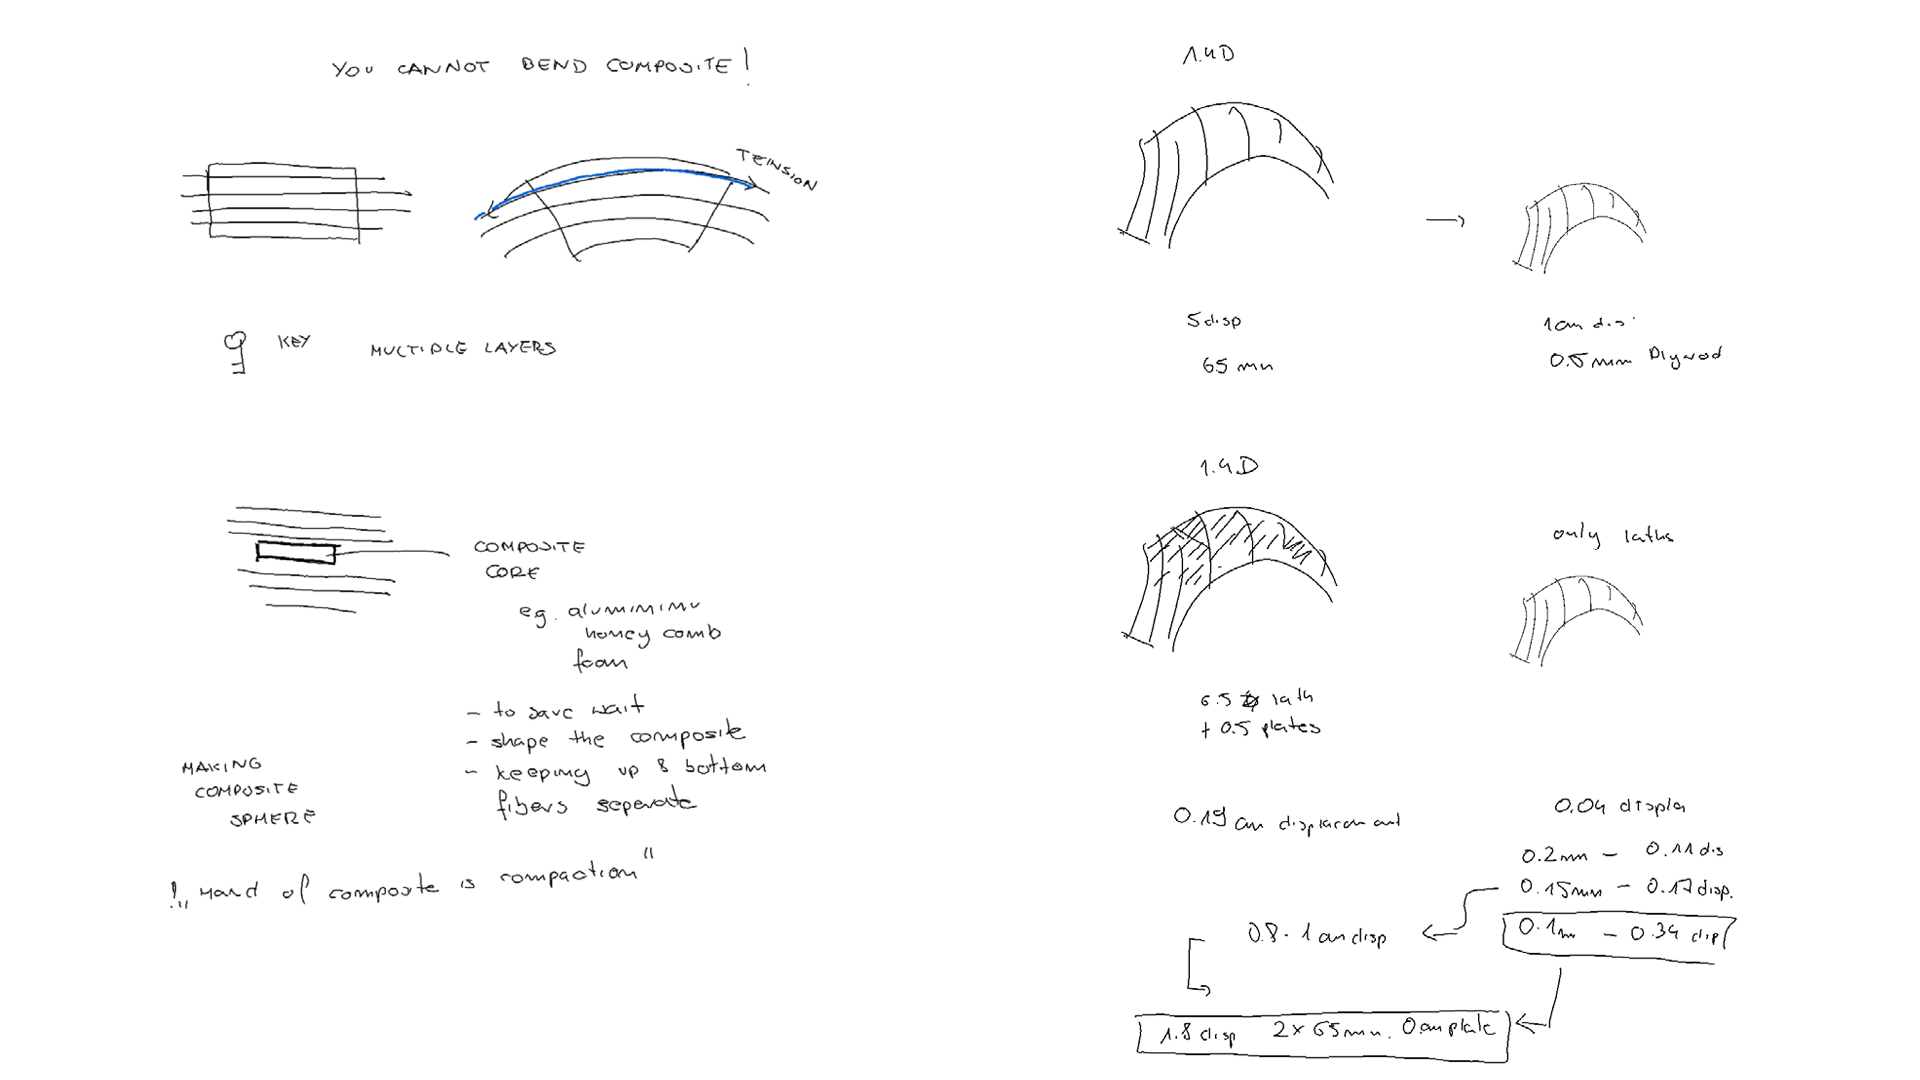 YOU CANNOT BEND COMPOSITE!
TEINSION
KEY MULTIPLE LAYERS
COMPOSITE
CORE
eg. alumimimu
honey comb
foam
- to save wait
- shape the composite
- keeping up & bottom
fibers seperate
MAKING
COMPOSITE
SPHERE
!„ Hand of composite is compaction"
1.4D
5 disp
65 mm
1 cm dis.
0.5 mm Plywod
1.4D
only laths
6.5 lath
+ 0.5 plates
0.19 cm displacement
0.04 displa
0.2mm - 0.11 dis
0.15mm - 0.17 disp.
0.1m - 0.34 disp
0.8 - 1 cm disp
1.8 disp 2 x 65 mm. 0 cm plate